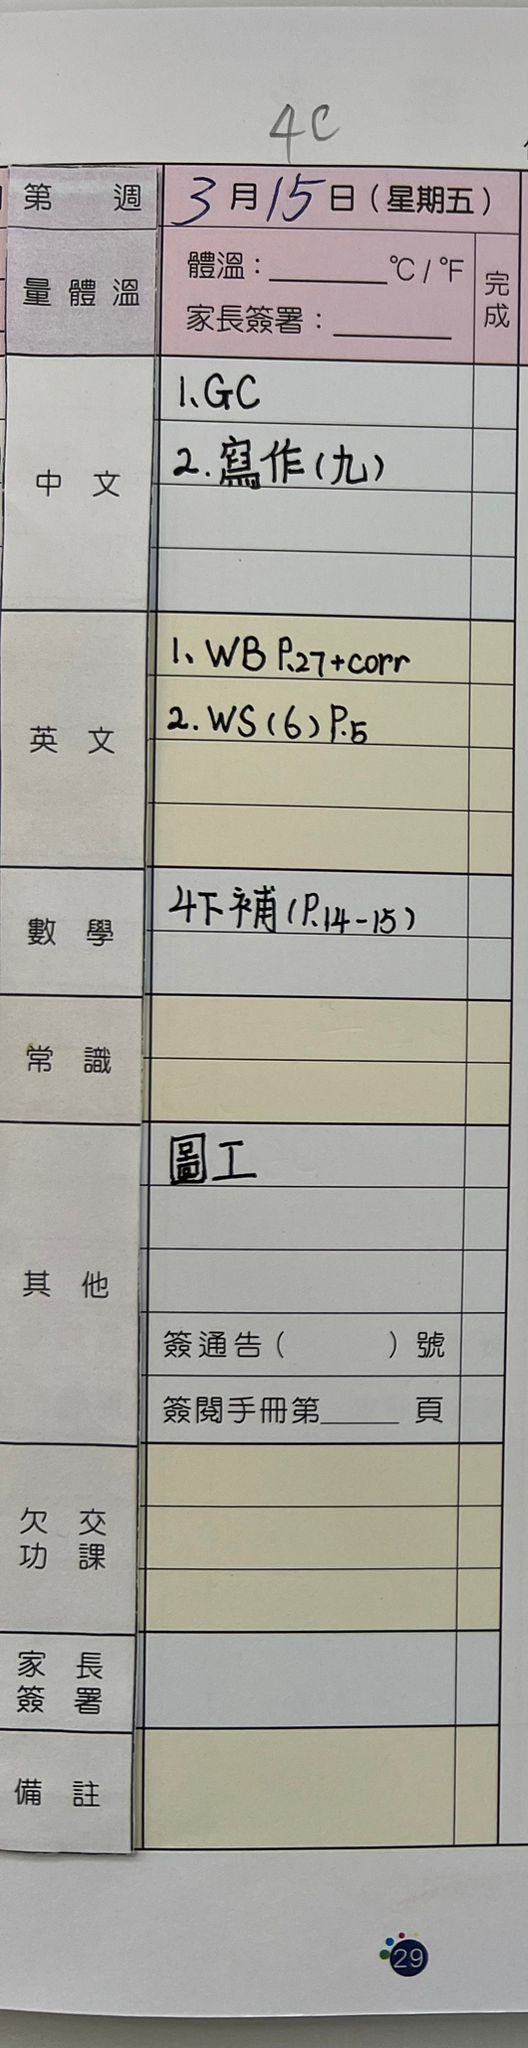 4C
第 週 3月15日(星期五)
量體溫
體溫：______℃/℉
家長簽署：______
完成
中文
1、GC
2.寫作(九)
英文
1、WB P.27+corr
2.WS(6)P.5
數學
4下補(P.14-15)
常識
其他
圖工
簽通告( )號
簽閱手冊第____頁
欠交
功課
家長
簽署
備註
29